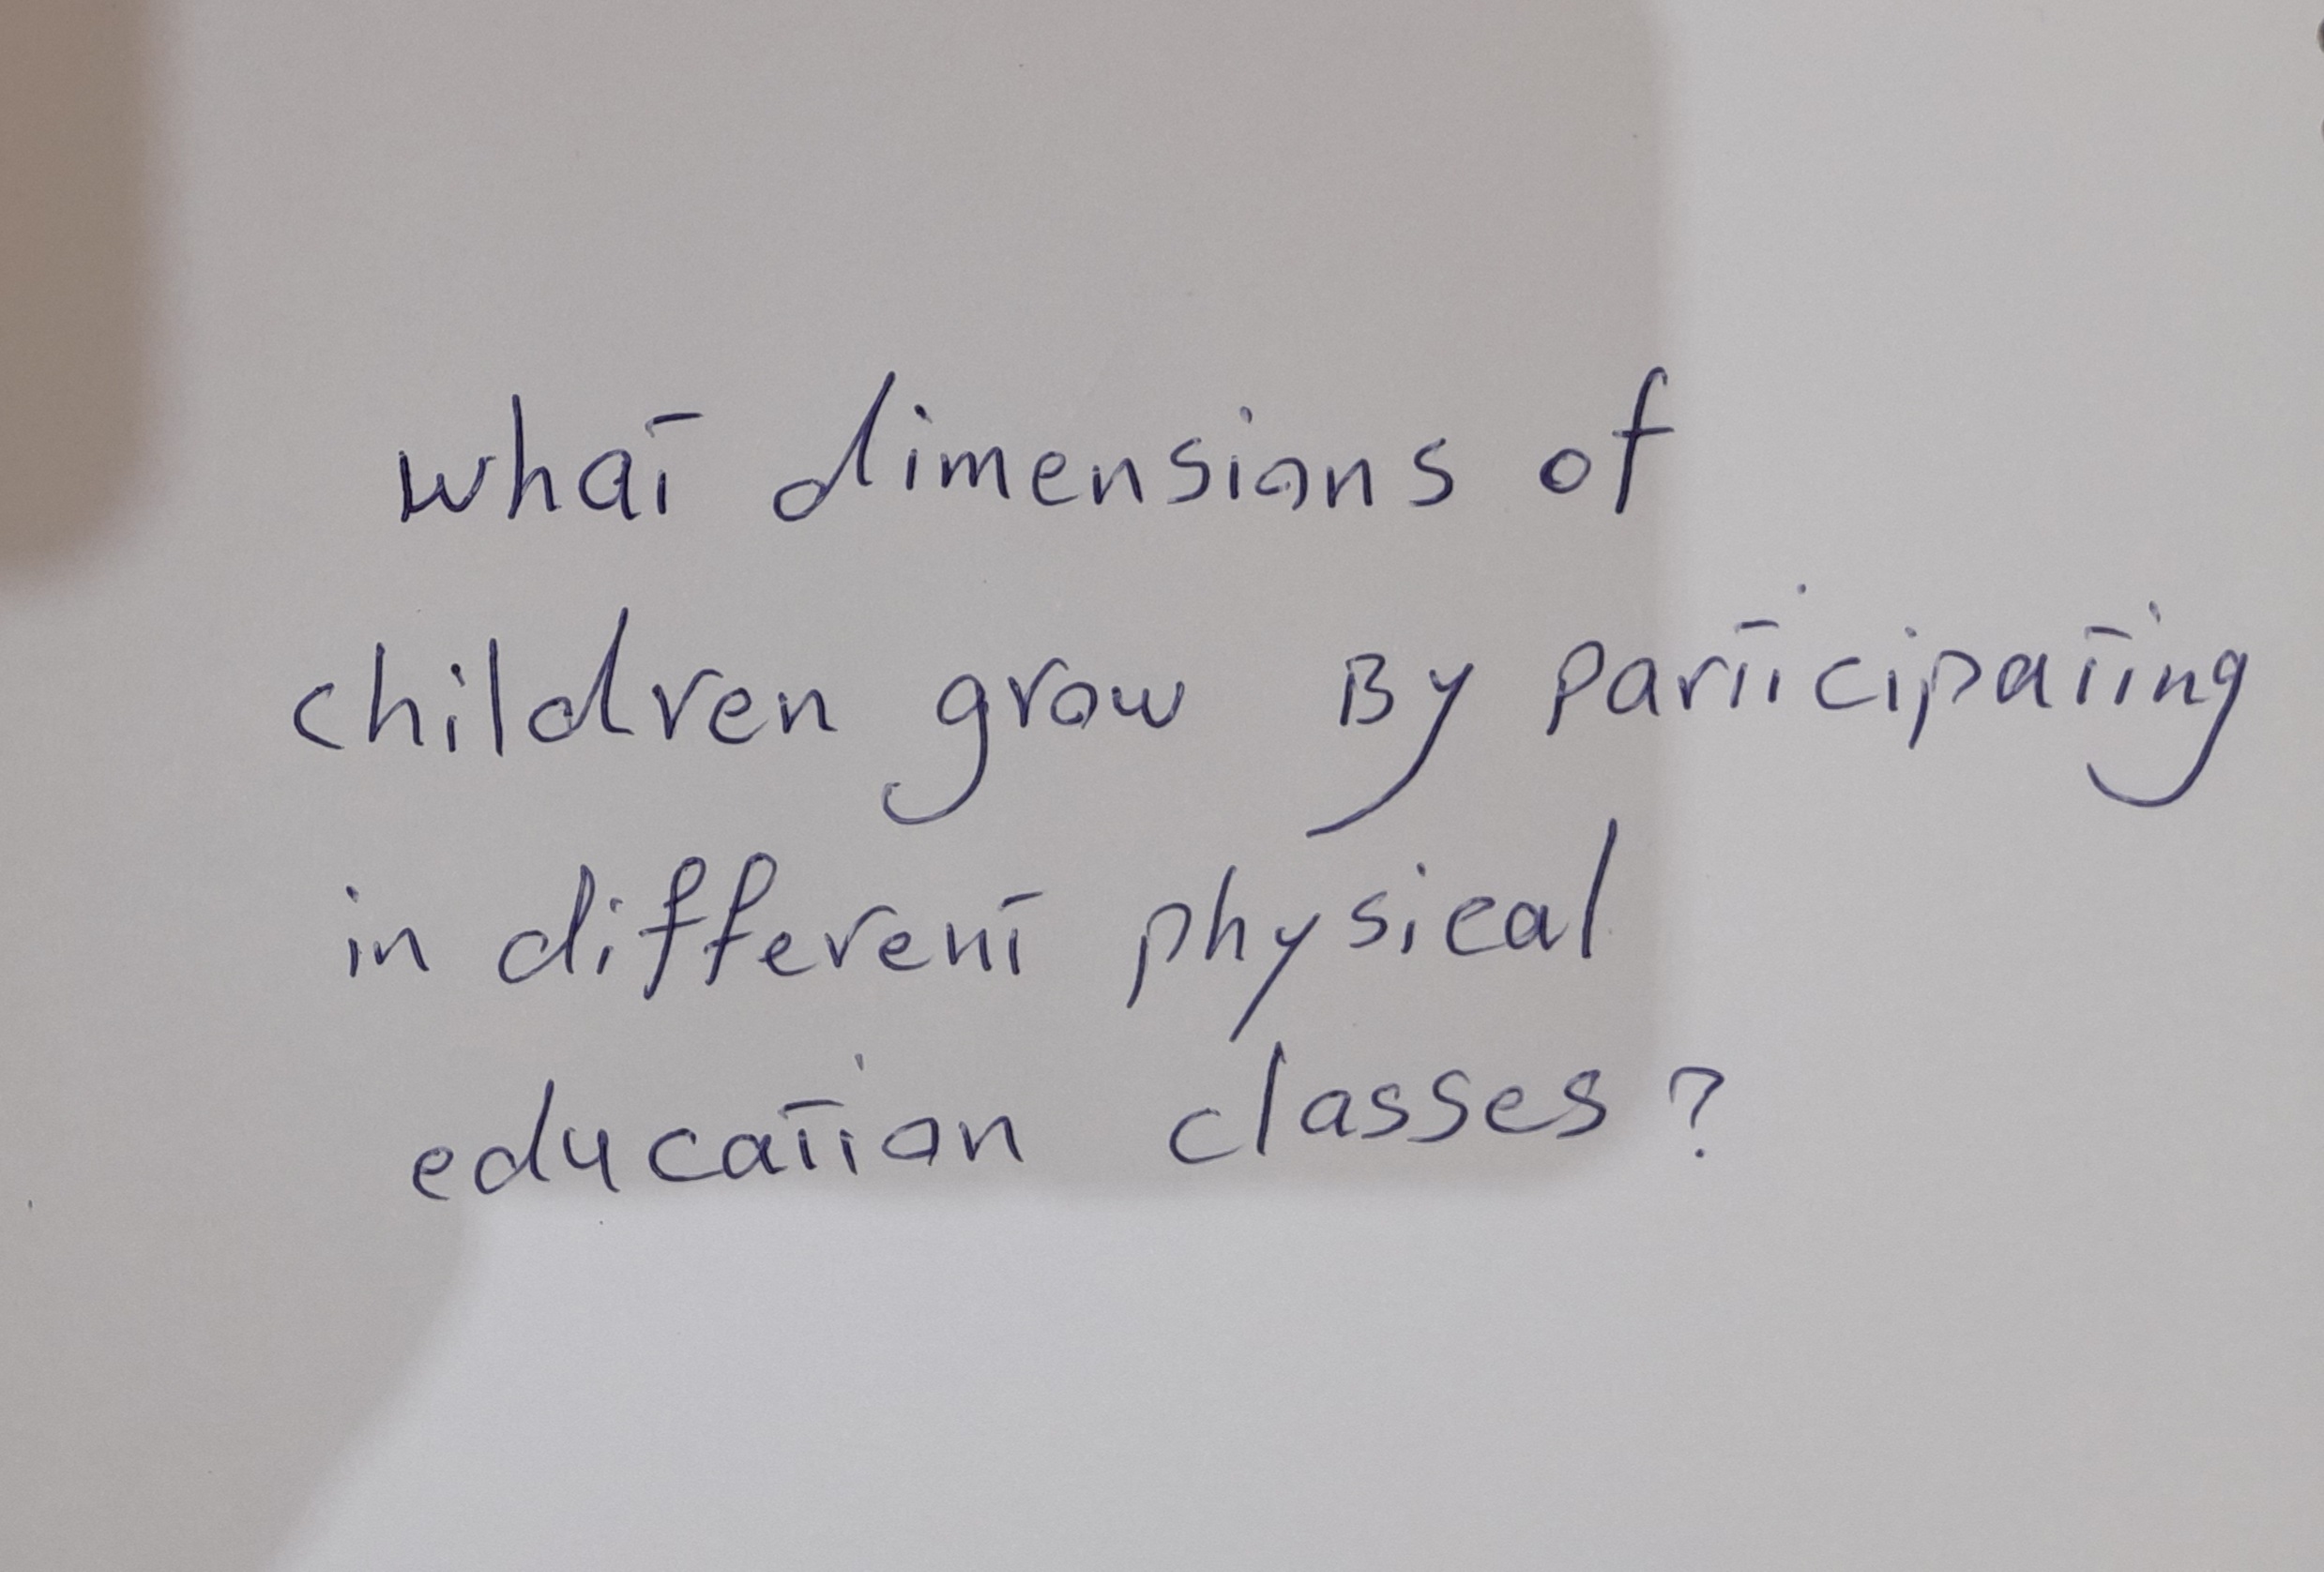 what dimensions of
children grow By participating
in different physical
education classes?